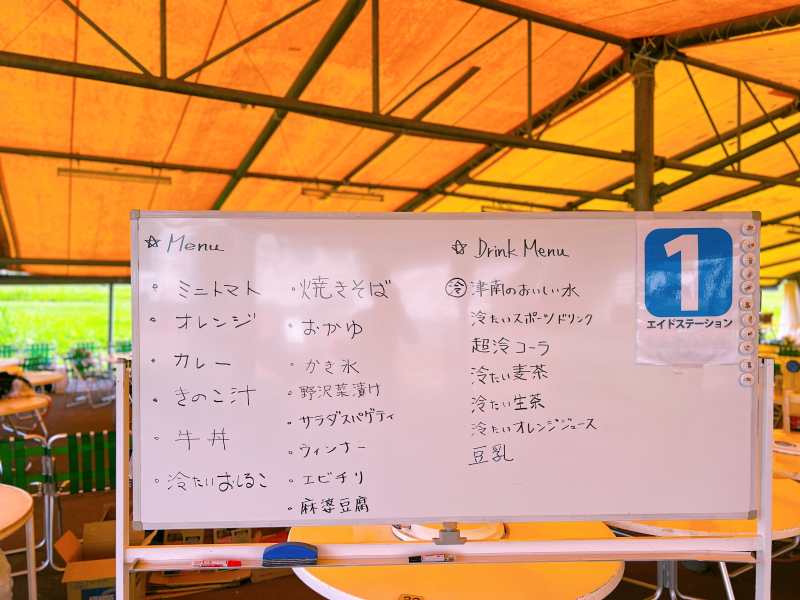 ☆ Menu
・ミニトマト
・オレンジ
・カレー
・きのこ汁
・牛丼
・冷たいおしるこ
・焼きそば
・おかゆ
・かき氷
・野沢菜漬け
・サラダスパゲティ
・ウィンナー
・エビチリ
・麻婆豆腐
☆ Drink Menu
㊗冷 津南のおいしい水
冷たいスポーツドリンク
超冷コーラ
冷たい麦茶
冷たい生茶
冷たいオレンジジュース
豆乳
1
エイドステーション